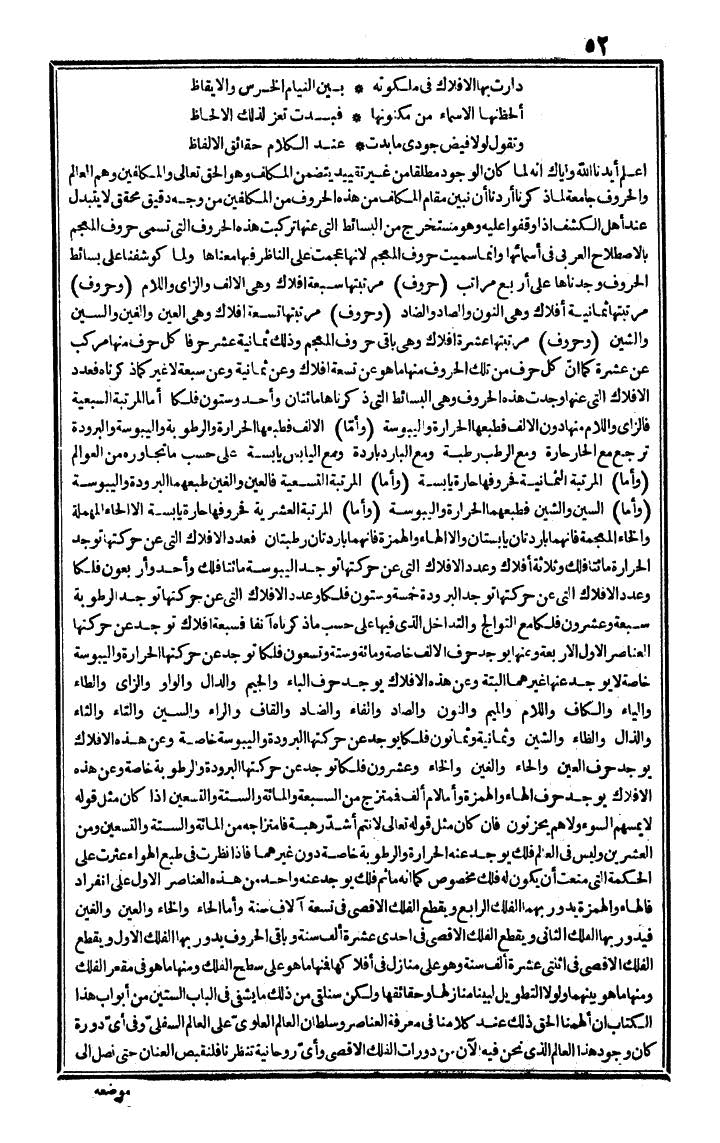 ٥٢
دارت بها الافلاك فى ملكوته * بين النيام الخرس والايقاظ
ألحظنها الاسماء من مكنونها * فبدت تعز لذلك الالحاظ
وتقول لولا فيض جودى ما بدت * عند الكلام حقائق الالفاظ
اعلم أيدنا الله واياك انه لما كان الوجود مطلقا من غير تقييد يتضمن المكلف وهو الحق تعالى والمكلفين وهم العالم
والحروف جامعة لما ذكرنا أردنا أن نبين مقام المكلف من هذه الحروف من المكلفين من وجه دقيق محقق لا يتبدل
عند أهل الكشف اذا وقفوا عليه وهو مستخرج من البسائط التى عنها تركبت هذه الحروف التى تسمى حروف المعجم
بالاصطلاح العربى فى أسمائها وانما سميت حروف المعجم لانها عجمت على الناظر فيها معناها ولما كوشفنا على بسائط
الحروف وجدناها على أربع مراتب (حروف) مرتبتها سبعة افلاك وهى الالف والزاى واللام (وحروف)
مرتبتها ثمانية أفلاك وهى النون والصاد والضاد (وحروف) مرتبتها تسعة افلاك وهى العين والغين والسين
والشين (وحروف) مرتبتها عشرة افلاك وهى باقى حروف المعجم وذلك ثمانية عشر حرفا كل حرف منها مركب
عن عشرة كما ان كل حرف من تلك الحروف منها ما هو عن تسعة افلاك وعن ثمانية وعن سبعة لا غير كما ذكرناه فعدد
الافلاك التى عنها وجدت هذه الحروف وهى البسائط التى ذكرناها مائتان وأحد وستون فلكا أما المرتبة السبعية
فالزاى واللام منها دون الالف فطبعها الحرارة واليبوسة (وأما) الالف فطبعها الحرارة والرطوبة واليبوسة والبرودة
ترجع مع الحار حارة ومع الرطب رطبة ومع البارد باردة ومع اليابس يابسة على حسب ما تجاوره من العوالم
(وأما) المرتبة الثمانية فحروفها حارة يابسة (وأما) المرتبة التسعية فالعين والغين طبعهما البرودة واليبوسة
(وأما) السين والشين فطبعهما الحرارة واليبوسة (وأما) المرتبة العشرية فحروفها حارة يابسة الا الحاء المهملة
والخاء المعجمة فانهما باردتان يابستان والا الهاء والهمزة فانهما باردتان رطبتان فعدد الافلاك التى عن حركتها توجد
الحرارة مائتا فلك وثلاثة أفلاك وعدد الافلاك التى عن حركتها توجد اليبوسة مائتا فلك وأحد وأربعون فلكا
وعدد الافلاك التى عن حركتها توجد البرودة خمسة وستون فلكا وعدد الافلاك التى عن حركتها توجد الرطوبة
سبعة وعشرون فلكا مع التوالج والتداخل الذى فيها على حسب ما ذكرناه آنفا فسبعة افلاك توجد عن حركتها
العناصر الاول الاربعة وعنها يوجد حرف الالف خاصة ومائة وستة وتسعون فلكا توجد عن حركتها الحرارة واليبوسة
خاصة لا يوجد عنها غيرهما البتة وعن هذه الافلاك يوجد حرف الباء والجيم والدال والواو والزاى والطاء
والياء والكاف واللام والميم والنون والصاد والفاء والضاد والقاف والراء والسين والتاء والثاء
والذال والظاء والشين وثمانية وثمانون فلكا توجد عن حركتها البرودة واليبوسة خاصة وعن هذه الافلاك
يوجد حرف العين والحاء والغين والخاء وعشرون فلكا توجد عن حركتها البرودة والرطوبة خاصة وعن هذه
الافلاك يوجد حرف الهاء والهمزة وأما لام ألف فممتزج من السبعة والمائة والستة والتسعين اذا كان مثل قوله
لا يمسهم السوء ولا هم يحزنون فان كان مثل قوله تعالى لانتم أشد رهبة فامتزاجه من المائة والستة والتسعين ومن
العشرين وليس فى العالم فلك يوجد عنه الحرارة والرطوبة خاصة دون غيرهما فاذا نظرت فى طبع الهواء عثرت على
الحكمة التى منعت أن يكون له فلك مخصوص كما انه ما ثم فلك يوجد عنه واحد من هذه العناصر الاول على انفراد
فالهاء والهمزة يدور بهما الفلك الرابع ويقطع الفلك الاقصى فى تسعة آلاف سنة وأما الحاء والخاء والعين والغين
فيدور بها الفلك الثانى ويقطع الفلك الاقصى فى احدى عشرة ألف سنة وباقى الحروف يدور بها الفلك الاول ويقطع
الفلك الاقصى فى اثنتى عشرة ألف سنة وهو على منازل فى أفلاكها فنها ما هو على سطح الفلك ومنها ما هو فى مقعر الفلك
ومنها ما هو بينهما ولولا التطويل لبينا منازلها وحقائقها ولكن سنلقى من ذلك ما يشفى فى الباب الستين من أبواب هذا
الكتاب ان ألهمنا الحق ذلك عند كلامنا فى معرفة العناصر وسلطان العالم العلوى على العالم السفلى وفى أى دورة
كان وجود هذا العالم الذى نحن فيه الآن من دورات الفلك الاقصى وأى روحانية تنظرنا فلنقبض العنان حتى نصل الى
موضعه